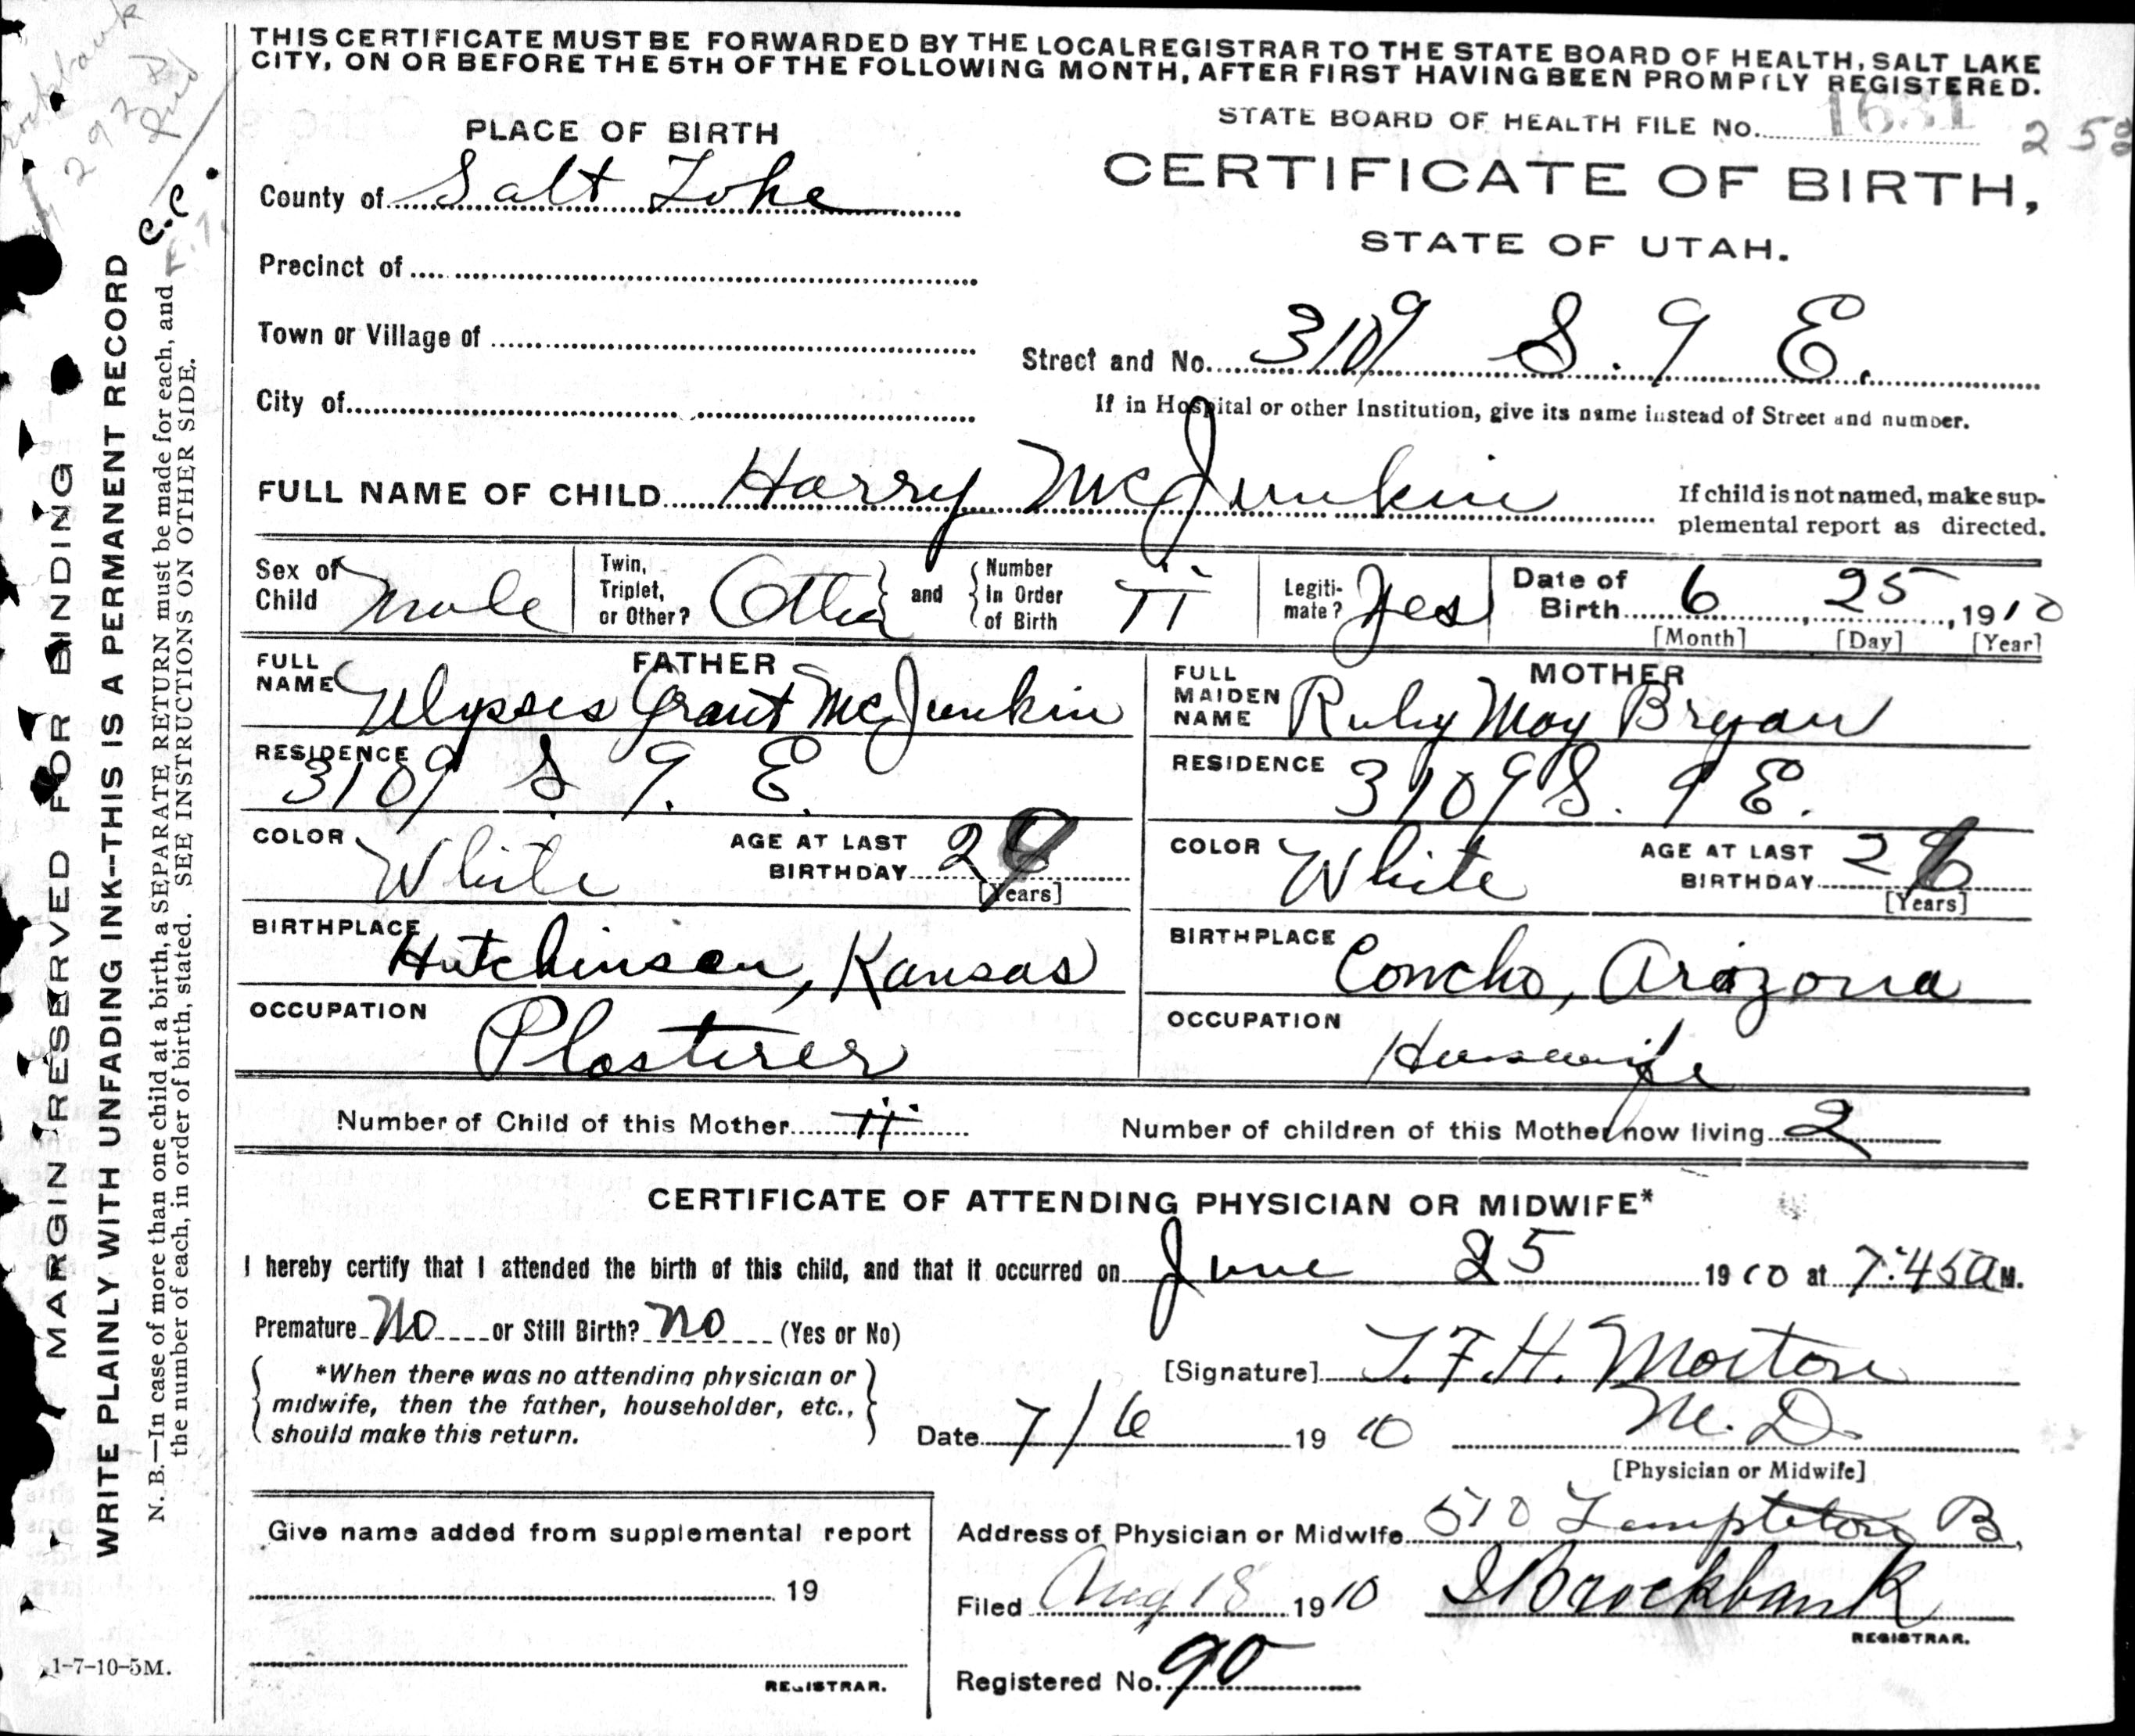 THIS CERTIFICATE MUST BE FORWARDED BY THE LOCAL REGISTRAR TO THE STATE BOARD OF HEALTH, SALT LAKE
CITY, ON OR BEFORE THE 5TH OF THE FOLLOWING MONTH, AFTER FIRST HAVING BEEN PROMPTLY REGISTERED.
STATE BOARD OF HEALTH FILE No. 1631
PLACE OF BIRTH
CERTIFICATE OF BIRTH,
STATE OF UTAH.
County of Salt Lake
Precinct of
Town or Village of
Street and No. 3109 S. 9 E.
City of
If in Hospital or other Institution, give its name instead of Street and number.
FULL NAME OF CHILD Harry McJunkin
If child is not named, make sup-
plemental report as directed.
Sex of Child Male
Twin, Triplet, or Other? Other and Number In Order of Birth II
Legiti-mate? Yes
Date of Birth 6 25, 1910
[Month] [Day] [Year]
FATHER
FULL NAME Ulysses Grant McJunkin
RESIDENCE 3109 S. 9. E.
COLOR White
AGE AT LAST BIRTHDAY 29
[Years]
BIRTHPLACE Hutchinson, Kansas
OCCUPATION Plasterer
MOTHER
FULL MAIDEN NAME Ruby May Bryan
RESIDENCE 3109 S. 9 E.
COLOR White
AGE AT LAST BIRTHDAY 26
[Years]
BIRTHPLACE Concho, Arizona
OCCUPATION Housewife
Number of Child of this Mother II
Number of children of this Mother now living 2
CERTIFICATE OF ATTENDING PHYSICIAN OR MIDWIFE*
I hereby certify that I attended the birth of this child, and that it occurred on June 25 1910 at 7:45 A M.
Premature No or Still Birth? No (Yes or No)
*When there was no attending physician or
midwife, then the father, householder, etc.,
should make this return.
[Signature] T. F. H. Morton
Date 7/6 1910 M. D.
[Physician or Midwife]
Give name added from supplemental report
19
REGISTRAR.
Address of Physician or Midwife 510 Templeton B,
Filed Aug 18 1910 Brockbank
REGISTRAR.
Registered No. 90
MARGIN RESERVED FOR BINDING
WRITE PLAINLY WITH UNFADING INK--THIS IS A PERMANENT RECORD
N. B.—In case of more than one child at a birth, a SEPARATE RETURN must be made for each, and
the number of each, in order of birth, stated. SEE INSTRUCTIONS ON OTHER SIDE.
1-7-10-5M.